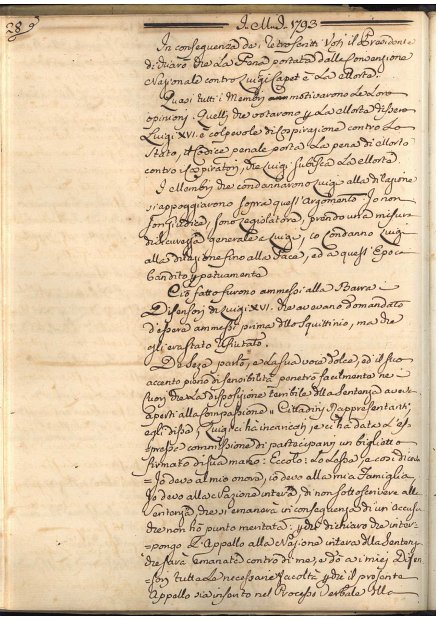 289
J. M. J. 1793
In consequenza de i retroscritti Voti il Presidente
dichiarò che La Pena portata dalla Convenzione
Nazionale contro Luigi Capet è La Morte.
Quasi tutti i Membri motivarono Le Loro
opinioni. Quelli che votarono p La Morte dissero
Luigi XVI. è colpevole di Cospirazione contro Lo
Stato, il Codice penale porta La pena di Morte
contro i Cospiratori, che Luigi subisca La Morte.
I Membri che condannarono Luigi alla detenzione
si appoggiarono sopra quest' Argomento. Io non
son Giudice, sono Legislatore, prendo una misura
di sicurezza generale e Luigi, io Condanno Luigi
alla detenzione fino alla Pace, ed a quest' Epoca
bandito perpetuamente
Ciò fatto furono ammessi alla Sbarra i
Difensori di Luigi XVI. che avevano domandato
d'essere ammessi prima dello Squittinio, ma che
gli era stato rifiutato.
De Seze parlò, e La sua voce dolce, ed il suo
accento pieno di sensibilità penetrò facilmente ne
cuori che La disposizione terribile della Sentenza aveva
aperti alla compassione = Cittadini Rappresentanti
egli disse, Luigi ci ha incaricati, e ci ha data L'es
pressa commissione di parteciparvi un biglietto
firmato di sua mano: Eccolo: Lo Lesse e così dice
= Io devo al mio onore, io devo alla mia Famiglia
Io devo alla Nazione intera di non sottoscrivere alla
Sentenza che si emanerà in conseguenza di un accusa
che non hò punto meritata: p che dichiaro che inter=
=pongo L'Appello alla Nazione intera della Sentenza
che sarà emanata contro di me; e dò a i miei Difen
sori tutte Le necessarie facoltà p che il presente
Appello sia inserito nel Processo Verbale della